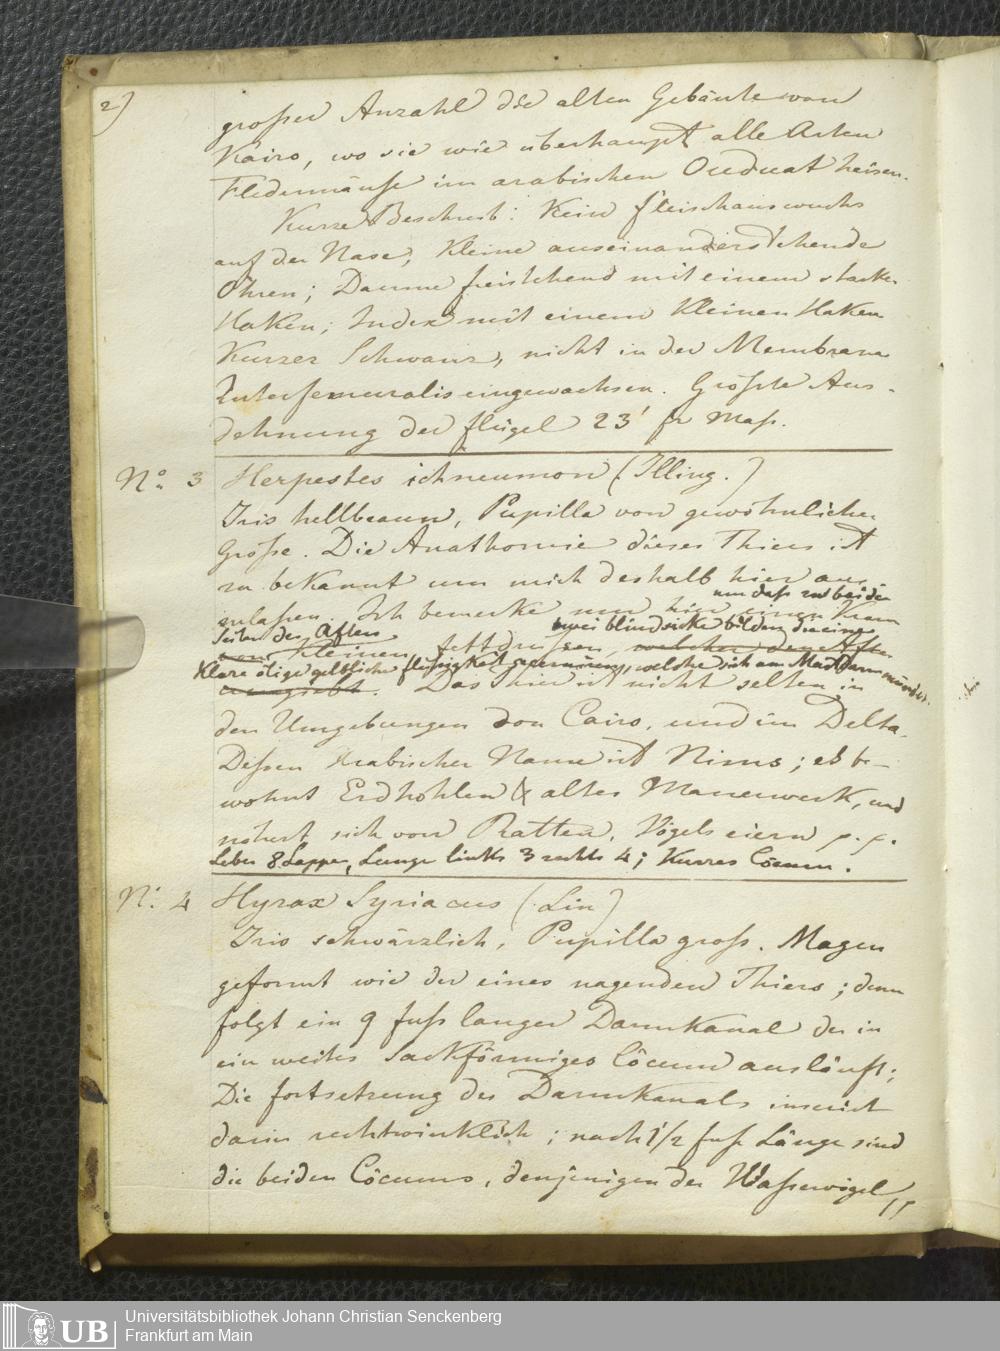 2)
großer Anzahl die alten Gebäude von
Kairo, wo sie wie überhaupt alle Arten
Fledermäuse im arabischen Ouduat heisen.
Kurze Beschreib: Kein fleischauswuchs
auf der Nase, Kleine auseinanderstehende
Ohren; Daume freistehend mit einem starken
Haken; Index mit einem Kleinen Haken
Kurzer Schwanz, nicht in der Membrana
Interfemuralis eingewachsen. Größte Aus-
dehnung der flügel 23' fr Maß.
No. 3 Herpestes ichneumon (Illing.)
Iris hellbraun, Pupilla von gewöhnlicher
Größe. Die Anathomie dieses Thiers ist
zu bekannt um mich deshalb hier aus
zulaßen. Ich bemerke nur hier einen Kran
nur daß zu beiden
Seiten des Afters zwei blindsäcke bilden die eine
von Kleinen fettdrüsen, welcher den After
Klare ölige gelbliche flüßigkeit secerniren, welche sich am Mastdarm münden.
umgiebt. Das Thier ist nicht selten in
den Umgebungen von Cairo, und im Delta.
Deßen Arabischer Name ist Nims; es be-
wohnt Erdhöhlen & altes Mauerwerk, und
nährt sich von Ratten, Vögeleiern p. p.
Leber 8 Lappen, Lunge links 3 rechts 4; Kurzes Cöcum.
N: 4 Hyrax Syriacus (Lin)
Iris schwärzlich, Pupilla groß. Magen
geformt wie der eines nagenden Thiers; dann
folgt ein 9 fuß langer Darmkanal der in
ein weites Sackförmiges Cöcum ausläuft;
Die fortsetzung des Darmkanals inserirt
darin rechtwinklich; nach 1/2 fuß Länge sind
die beiden Cöcums, denjenigen der Waßervögel
Universitätsbibliothek Johann Christian Senckenberg
UB Frankfurt am Main